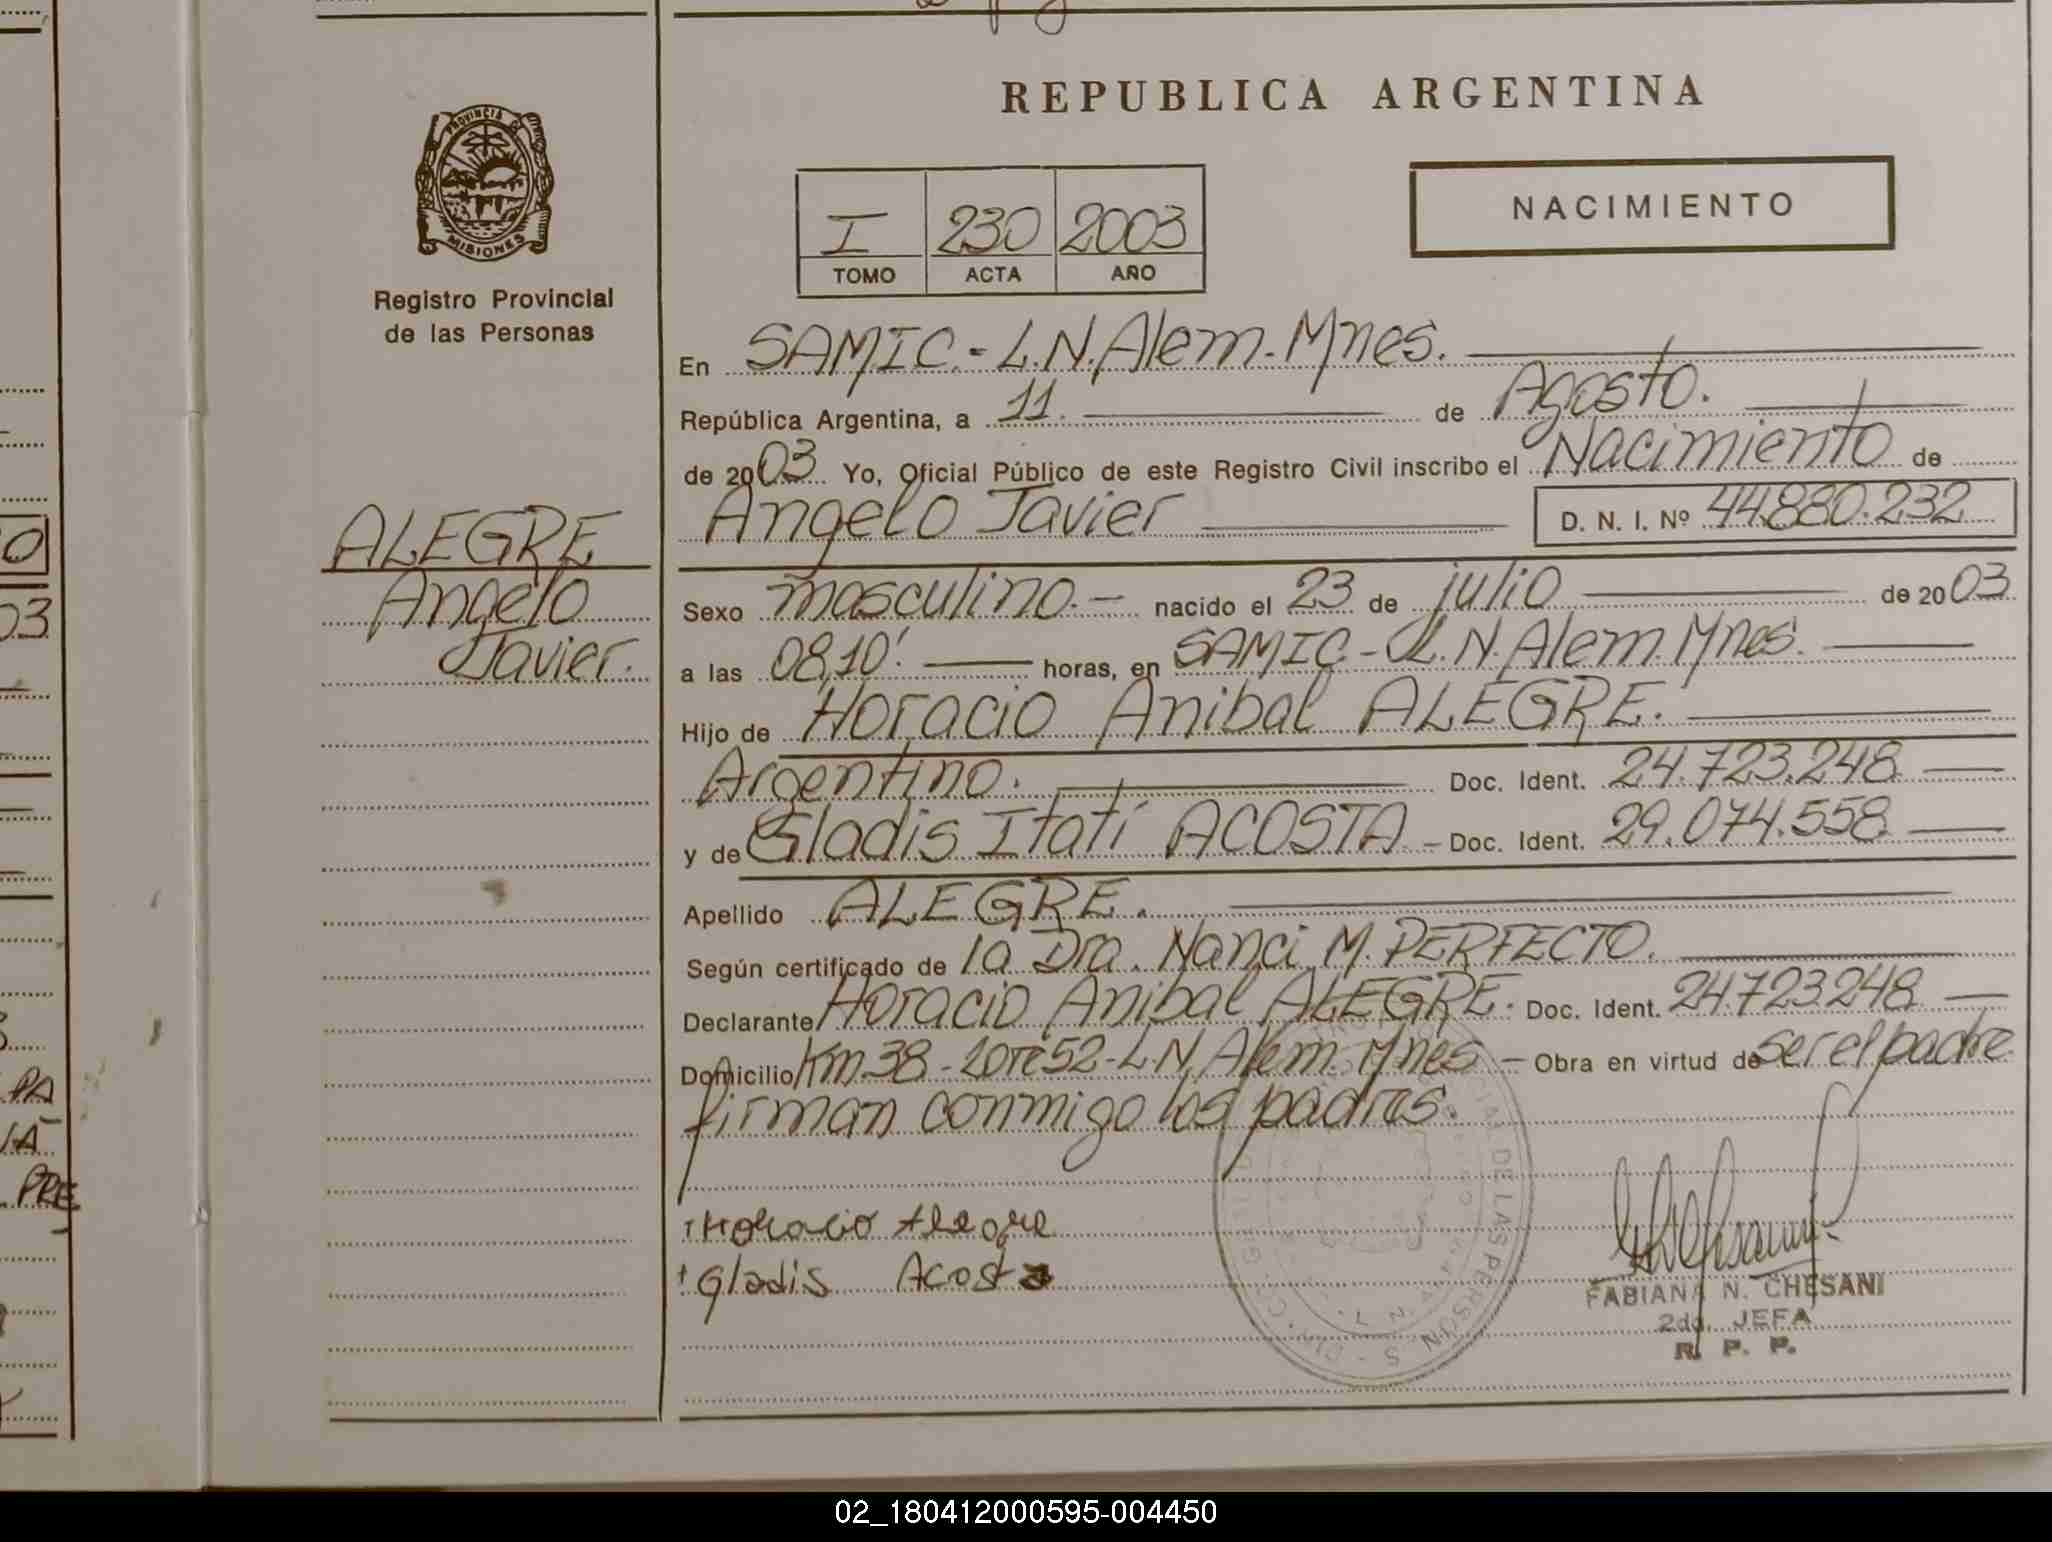 REPUBLICA ARGENTINA
PROVINCIA DE
MISIONES
Registro Provincial
de las Personas
I 230 2003
TOMO ACTA AÑO
NACIMIENTO
En SAMIC.- L.N.Alem.Mnes.
República Argentina, a 11. de Agosto.
de 2003 Yo, Oficial Público de este Registro Civil inscribo el Nacimiento de
Angelo Javier D. N. I. Nº 44.880.232
ALEGRE
Angelo
Javier.
Sexo masculino.- nacido el 23 de julio de 2003
a las 08,10'. horas, en SAMIC - L.N.Alem.Mnes.
Hijo de Horacio Anibal ALEGRE.
Argentino. Doc. Ident. 24.723.248
y de Gladis Itatí ACOSTA - Doc. Ident. 29.074.558
Apellido ALEGRE.
Según certificado de la Dra. Nanci M. PERFECTO.
Declarante Horacio Anibal ALEGRE. Doc. Ident. 24.723.248
Domicilio Km.38 - Lote 52 - L.N.Alem.Mnes - Obra en virtud de ser el padre.
firman conmigo los padres.
Horacio Alegre
Gladis Acosta
FABIANA N. CHESANI
2da. JEFA
R. P. P.
DE LAS PERSON S
0
03
PA
PRE
02_180412000595-004450